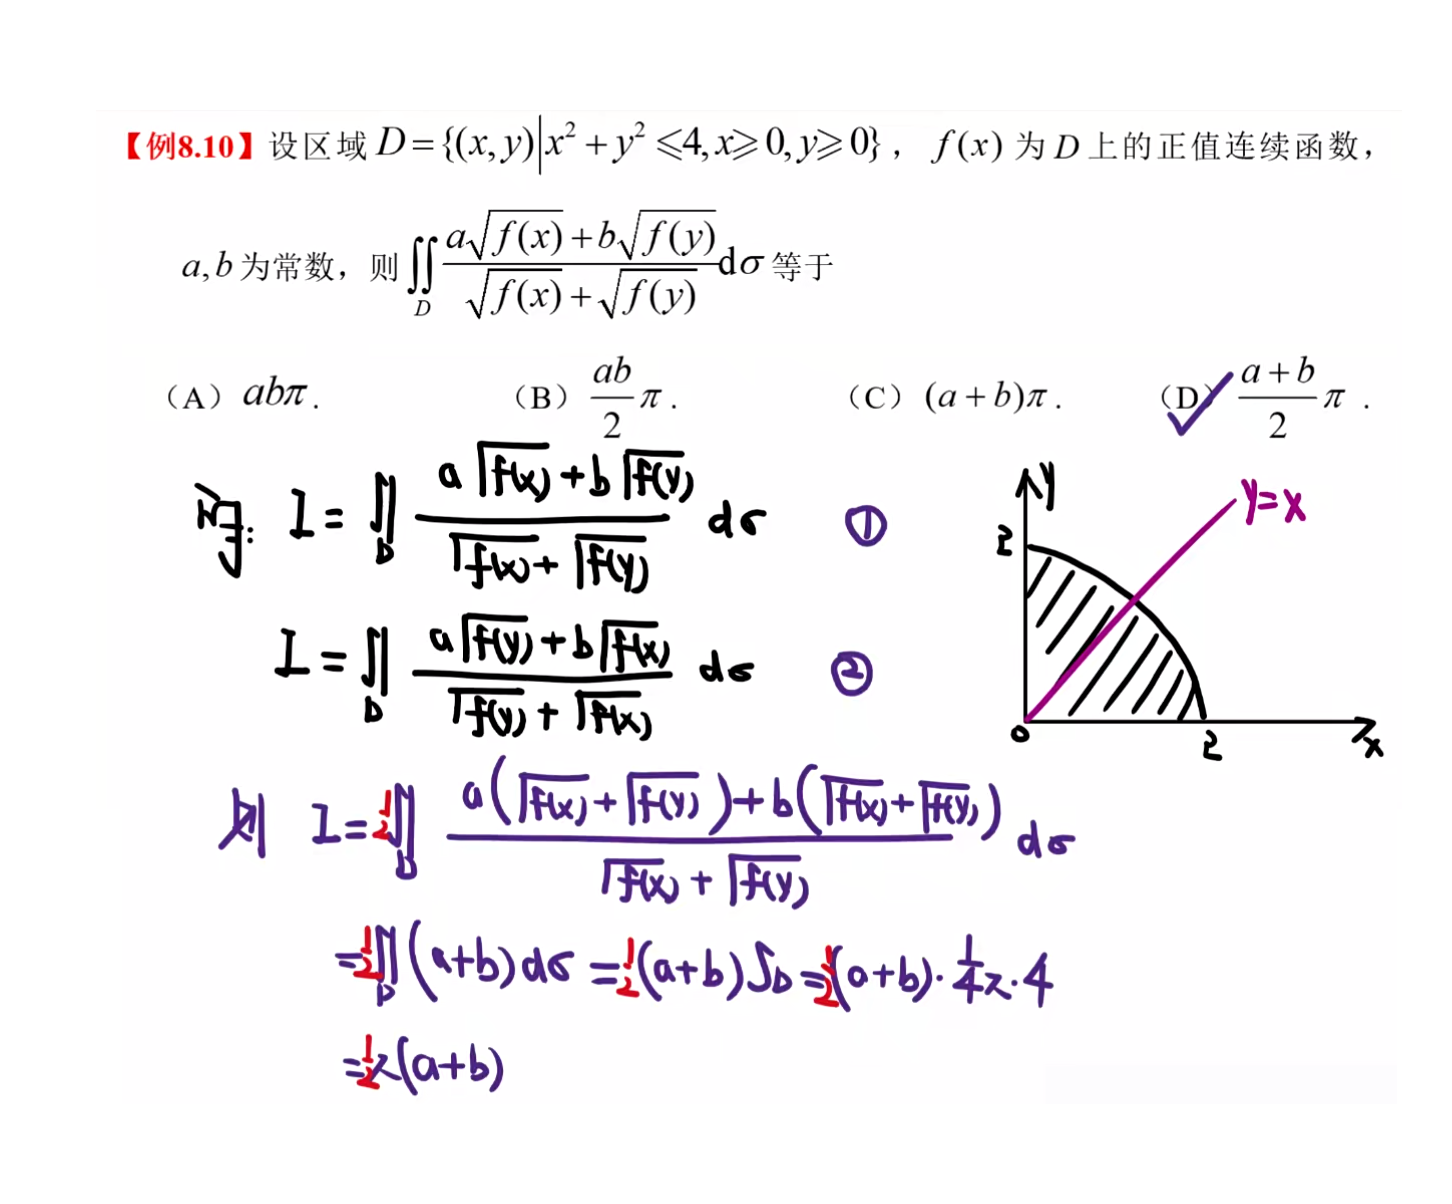 【例8.10】设区域 D={(x,y)|x²+y²≤4,x≥0,y≥0}，f(x) 为 D 上的正值连续函数，
a,b 为常数，则 ∬_D (a√f(x)+b√f(y))/(√f(x)+√f(y)) dσ 等于
（A）abπ. （B）ab/2 π. （C）(a+b)π. （D）(a+b)/2 π.
I = ∬_D (a√f(x)+b√f(y))/(√f(x)+√f(y)) dσ ①
I = ∬_D (a√f(y)+b√f(x))/(√f(y)+√f(x)) dσ ②
则 I = 1/2 ∬_D (a(√f(x)+√f(y))+b(√f(x)+√f(y)))/(√f(x)+√f(y)) dσ
= 1/2 ∬_D (a+b)dσ = 1/2 (a+b) S_D = 1/2 (a+b)·1/4 π·4
= 1/2 π(a+b)
y
y=x
2
0
2
x